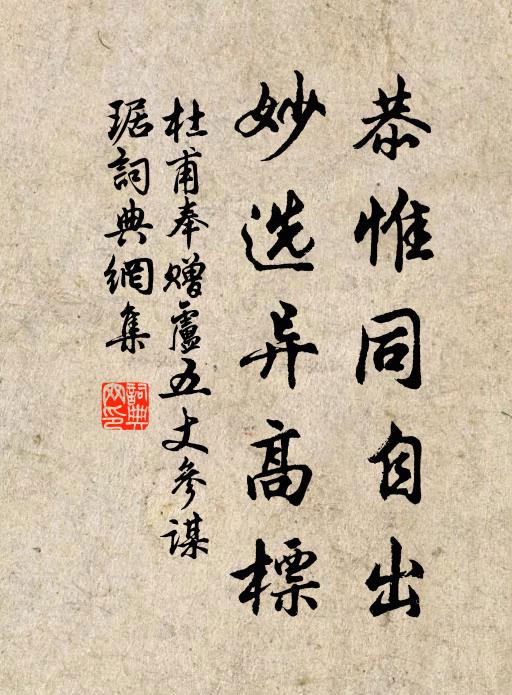 恭惟同自出
妙选异高標
杜甫奉赠盧五丈參谋
琚詞典網集
詞典网印